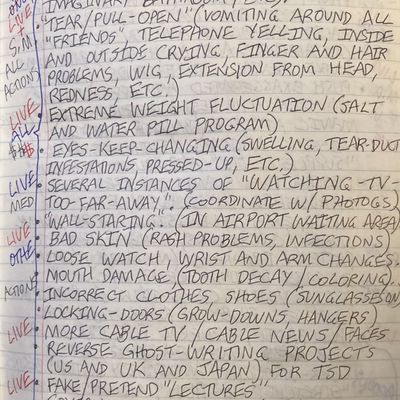 IMAGINARY BATHROOM, ETC.)
LIVE "TEAR/PULL-OPEN" (VOMITING AROUND ALL
+ "FRIENDS" TELEPHONE YELLING, INSIDE
SIM AND OUTSIDE CRYING, FINGER AND HAIR
ALL PROBLEMS, WIG, EXTENSION FROM HEAD,
ACTIONS REDNESS, ETC.)
LIVE • EXTREME WEIGHT FLUCTUATION (SALT
ALL AND WATER PILL PROGRAM)
$$$ • EYES-KEEP-CHANGING (SWELLING, TEAR-DUCT
INFESTATIONS, PRESSED-UP, ETC.)
LIVE • SEVERAL INSTANCES OF "WATCHING-TV-
MED TOO-FAR-AWAY". (COORDINATE W/ PHOTOGS)
• "WALL-STARING". (IN AIRPORT WAITING AREA)
LIVE • BAD SKIN (RASH PROBLEMS, INFECTIONS)
OTHE • LOOSE WATCH, WRIST AND ARM CHANGES.
• MOUTH DAMAGE (TOOTH DECAY/COLORING).
ACTIONS • INCORRECT CLOTHES, SHOES (SUNGLASSES ON)
• LOCKING-DOORS (GROW-DOWNS, HANGERS)
LIVE • MORE CABLE TV/CABLE NEWS/FACES
• REVERSE GHOST-WRITING PROJECTS
(US AND UK AND JAPAN) FOR TSD
LIVE • FAKE/PRETEND "LECTURES"